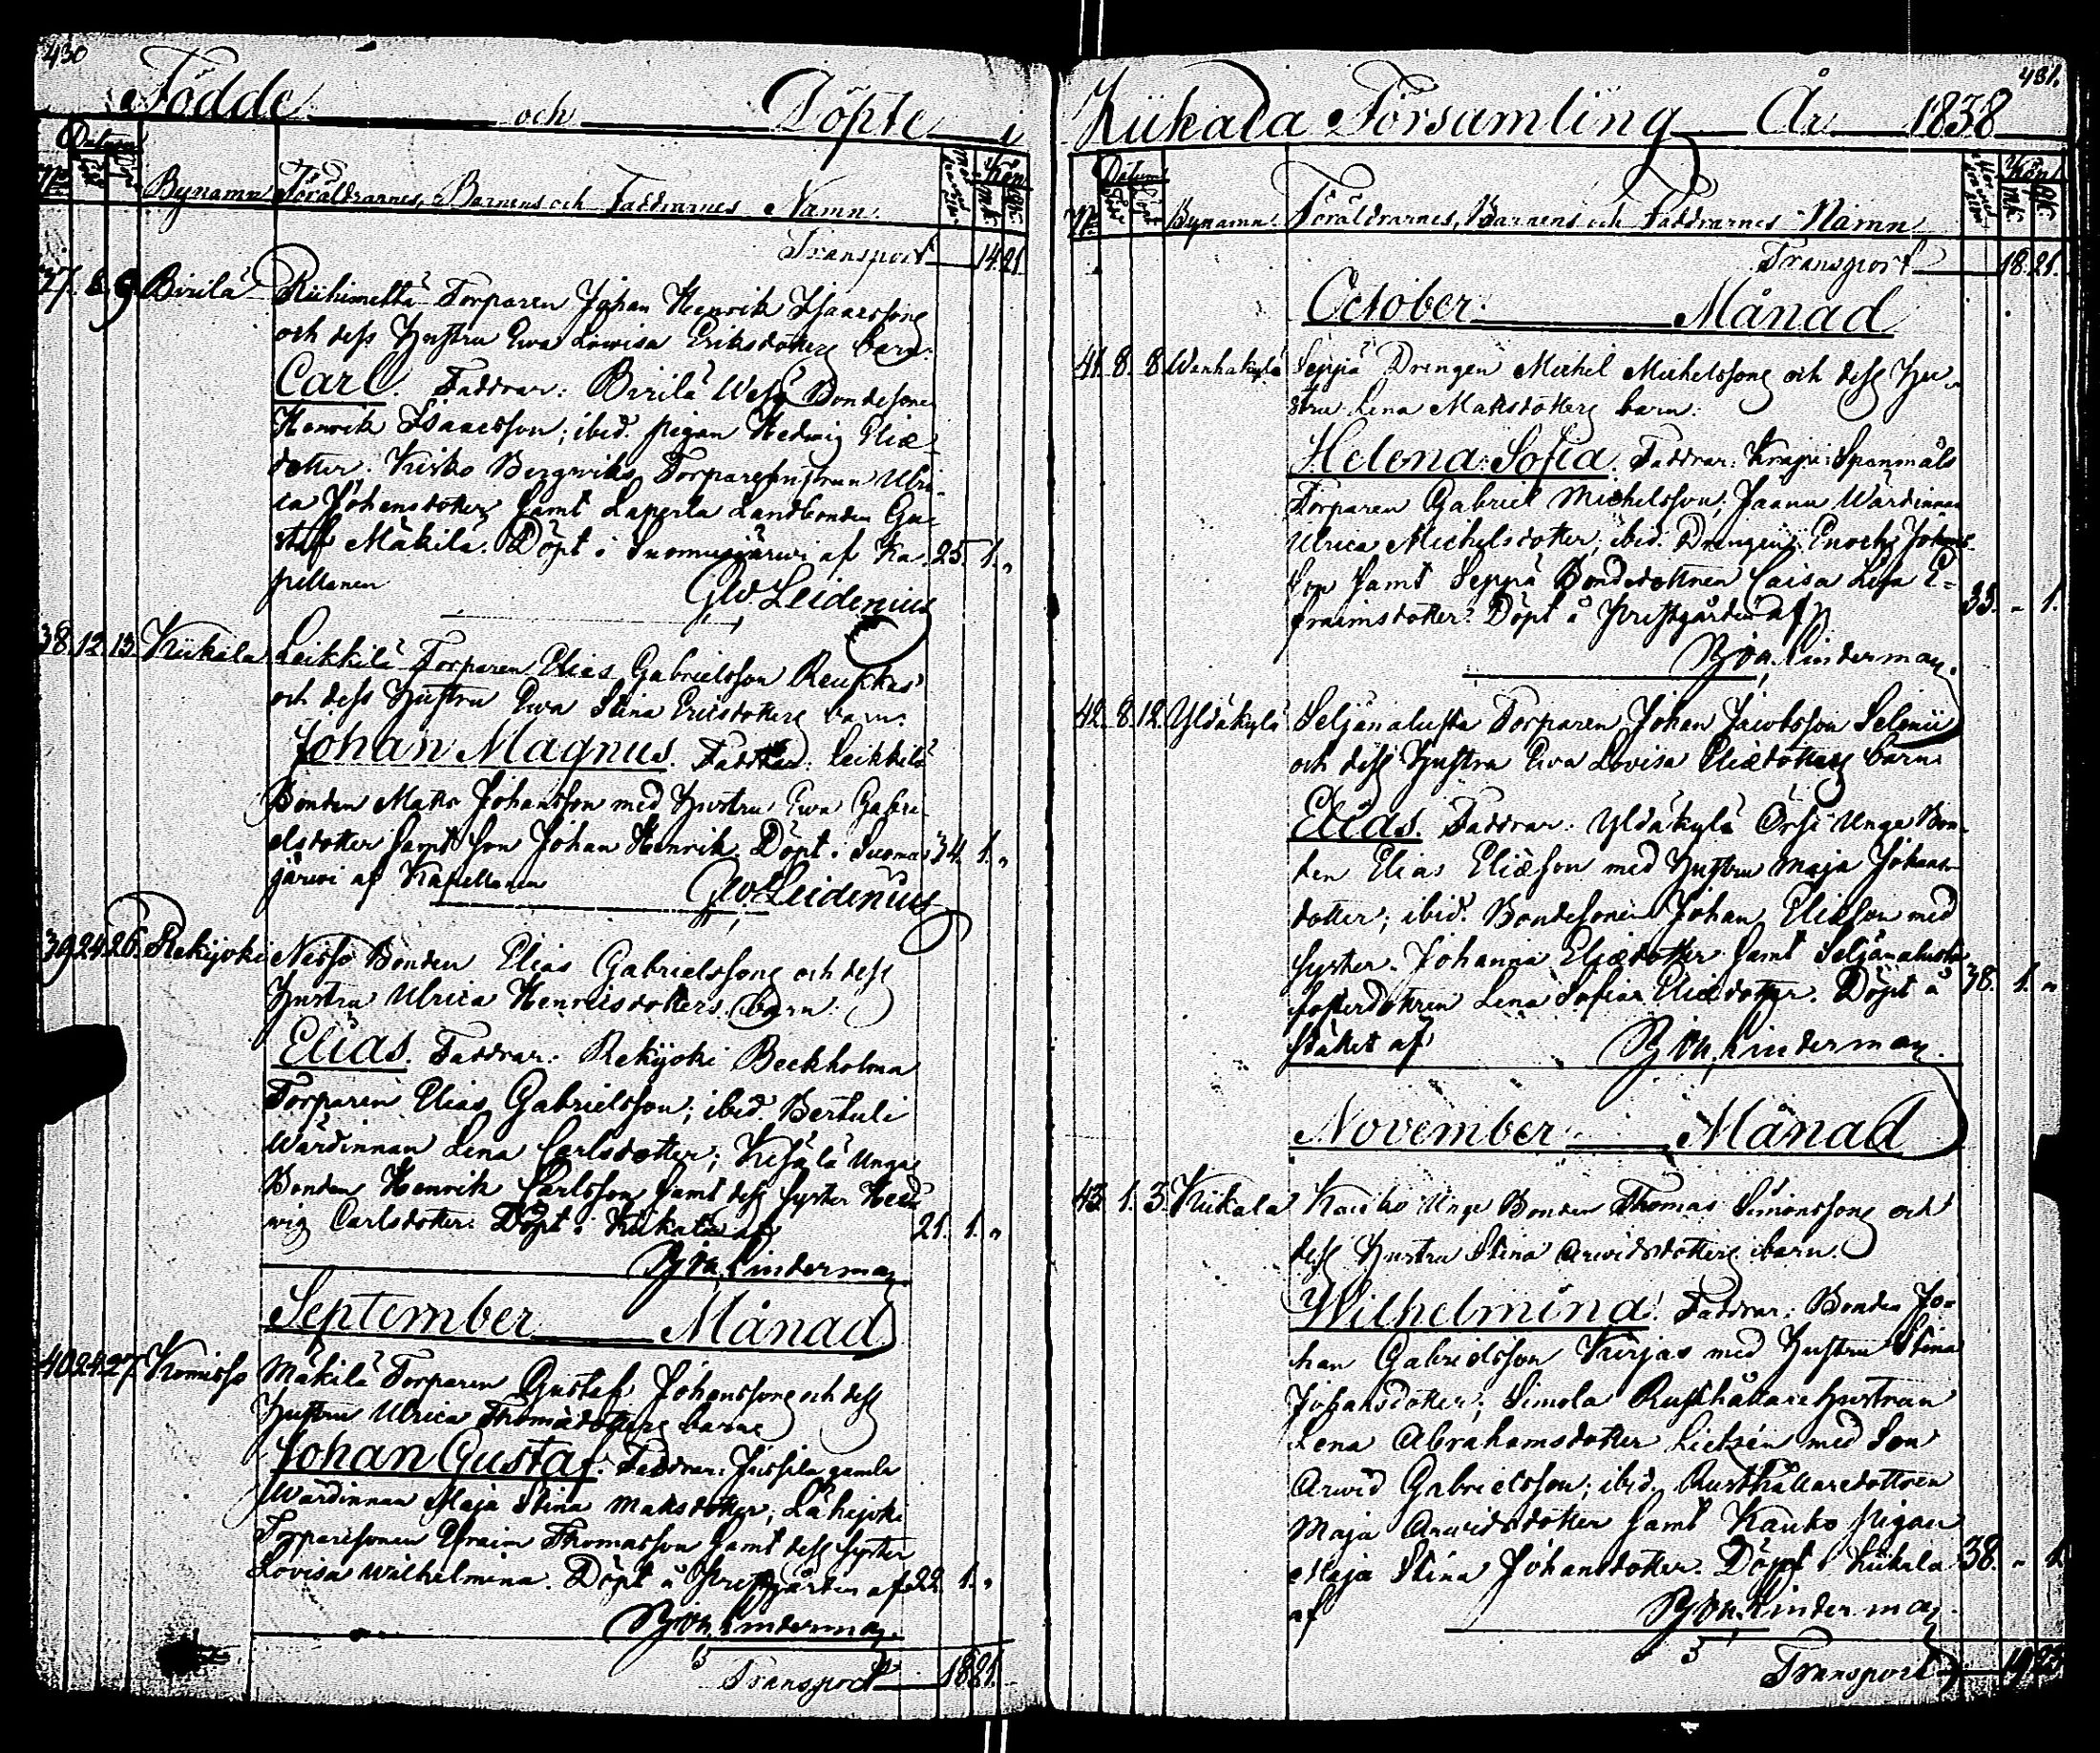 430
Födde och Döpte i
Datum
No Född Döpt Bynamn Föräldrarnes, Barnens och Faddrarnes Namn Kön
Mk: Qk:
Transport 14. 21.
37. 8. 9. Birilä Riihimettä Torparen Johan Henrik Isaacssons
och dess Hustru Ewa Lowisa Eriksdotters barn:
Carl. Faddrar: Birilä Wesi Bondesonen
Henrik Isaacsson; ibid. pigan Hedwig Eliæ
dotter. Kisko Bergwiks Torparehustrun Ulri-
ca Johansdotter Samt Laperla Landbonden Gu-
staf Mäkilä. Döpt i Suomusjärwi af Ka- 25. 1. "
pellanen
Gw. Leidenius
38. 12. 13. Kiikala Leikkilä Torparen Elias Gabrielsson
och dess Hustru Ewa Stina Ericsdotters barn:
Johan Magnus. Faddrar: Leikkilä
Bonden Matts Johansson med Hustru Ewa Gabri-
elsdotter Samt Son Johan Henrik. Döpt i Suomus 34. 1. "
järwi af Kapellanen Gw. Leidenius
39. 24. 26. Rekijoki Bonden Elias Gabrielssons och dess
Hustru Ulrica Henricsdotters barn:
Elias. Faddrar: Rekijoki Beckholma
Torparen Elias Gabrielsson; ibid. Bertuli
Wärdinnan Lena Carlsdotter; Kesälä Unga
Bonden Henrik Carlsson Samt dess Syster Hed-
wig Carlsdotter. Döpt i Kiikala af 21. 1. "
Joh. Linderman
September Månad
40. 24. 27. Komisso Mäkilä Torparen Gustaf Johanssons och dess
Hustru Ulrica Thomædotters barn
Johan Gustaf. Faddrar: Jussila gamla
Wärdinnan Maja Stina Matsdotter; Lahijoki
Torparesonen Efraim Thomasson Samt dess Syster
Lovisa Wilhelmina. Döpt å Prestgården af 22. 1. "
Joh. Linderman
Transport 18. 21.
431.
Kiikala Församling År 1838
Datum
No Född Döpt Bynamn Föräldrarnes, Barnens och Faddrarnes Namn Kön
Mk: Qk:
Transport 18. 21.
October Månad
41. 8. 8. Wanhakylä Seppä Drengen Michel Michelssons och dess Hu-
stru Lena Matsdotters barn:
Helena Sofia. Faddrar: Spanmåls
Torparen Gabriel Michelsson; Jaanu Wärdinnan
Ulrica Michelsdotter; ibid. Drengen Enoch Johans-
son Samt Seppä Bondedottren Caisa Lisa E-
fraimsdotter. Döpt å Prestgården af 33. " 1.
Joh. Linderman
42. 8. 12. Yldäkylä Seljänalusta Torparen Johan Jacobsson
och dess Hustru Ewa Lovisa Eliædotters barn
Elias. Faddrar: Yldäkylä Örsi Unga Bon-
den Elias Eliæson med Hustru Maja Johans-
dotter; ibid. Bondesonen Johan Eliæson med
Syster Johanna Eliædotter Samt Seljänalusta
fosterdottren Lena Sofia Eliædotter. Döpt å 38. 1. "
stället af Joh. Linderman
November Månad
43. 1. 3. Kiikala Kauko Unge Bonden Thomas Simonssons och
dess Hustru Stina Arwidsdotters barn.
Wilhelmina. Faddrar: Bonden Jo-
han Gabrielsson Kirjas med Hustru Stina
Johansdotter; Simola Rusthållare Hustrun
Lena Abrahamsdotter Lietzén med Son
Arwid Gabrielsson; ibid. Rusthållaredottren
Maja Arwidsdotter Samt Kauko Pigan
Maja Stina Johansdotter. Döpt i Kiikala 38. " 1.
af Joh. Linderman
Transport 19. 23.